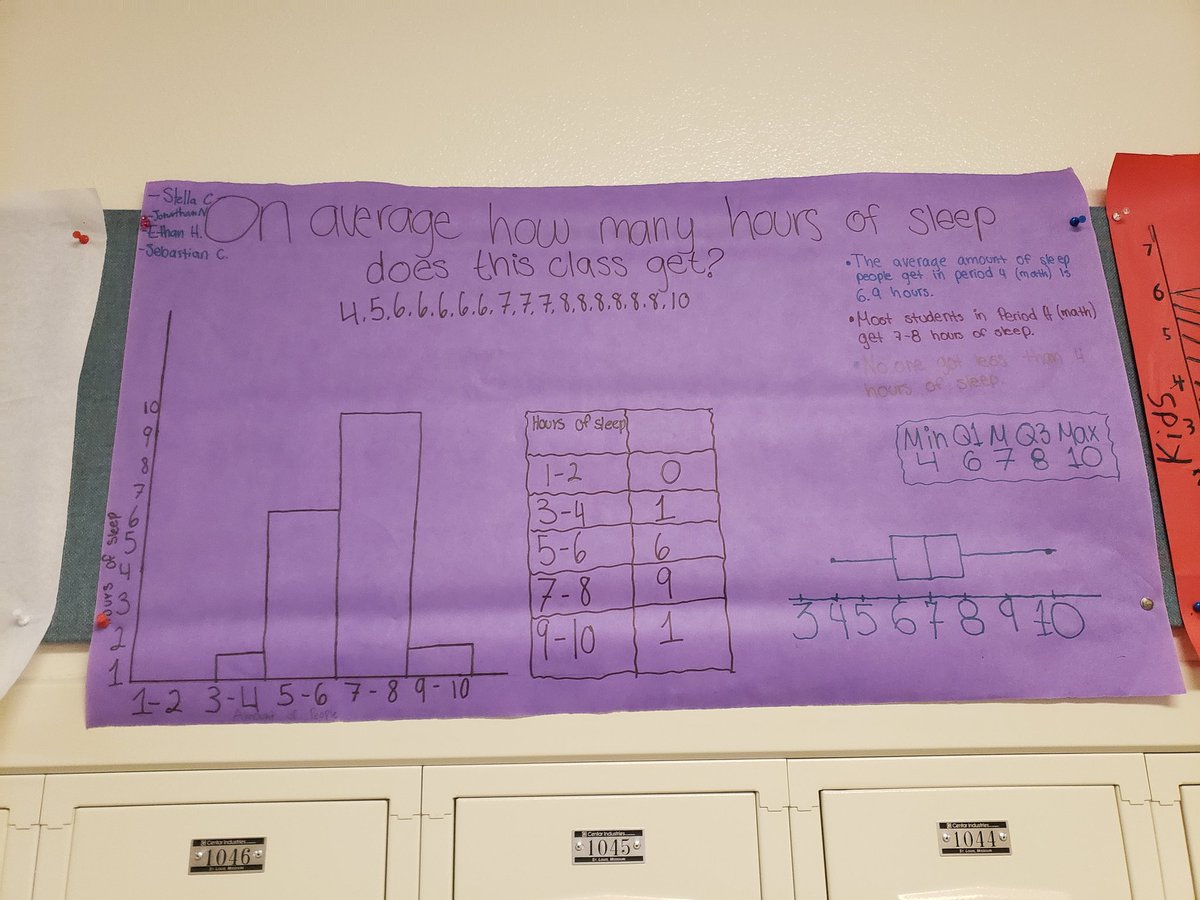 -Stella C.
-Jonathan N
-Ethan H.
-Sebastian C.
On average how many hours of sleep
does this class get?
4,5,6,6,6,6,6,7,7,7,8,8,8,8,8,8,10
•The average amount of sleep
people get in period 4 (math) is
6.9 hours.
•Most students in Period 4 (math)
get 7-8 hours of sleep.
•No one got less than 4
hours of sleep.
10
9
8
7
6
5
4
3
2
1
ours of sleep
1-2 3-4 5-6 7-8 9-10
Amount of People
Hours of sleep
1-2 0
3-4 1
5-6 6
7-8 9
9-10 1
Min Q1 M Q3 Max
4 6 7 8 10
3 4 5 6 7 8 9 10
7
6
5
4
3
Kids
Centor Industries
1046
St. Louis, Missouri
Centor Industries
1045
St. Louis, Missouri
Centor Industries
1044
St. Louis, Missouri